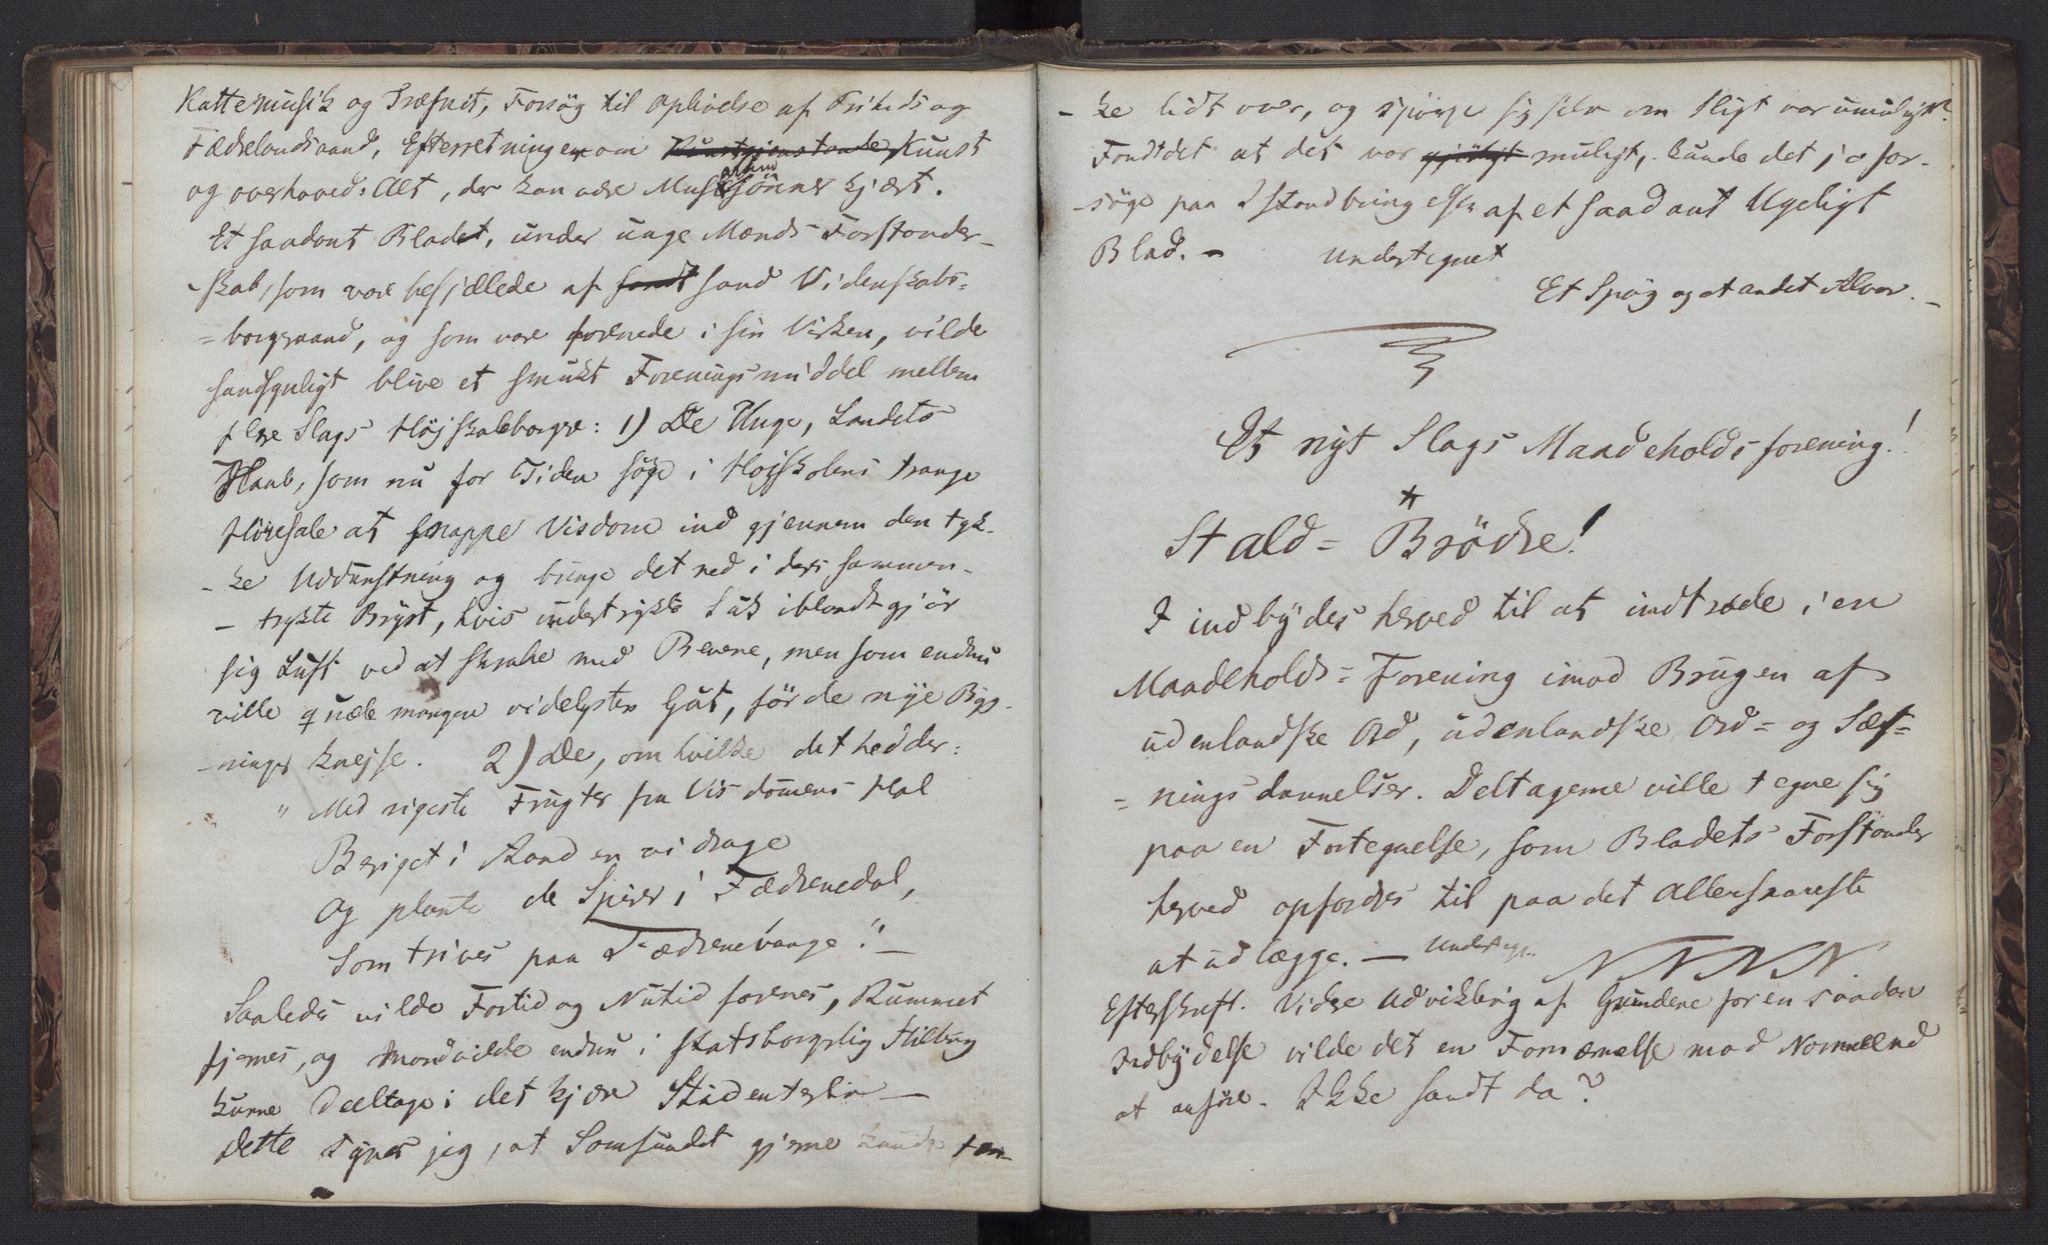 Kattemusik og Træsnit, Forsög til Oplivelse af Friheds og
Fædrelandsaand, Efterretninger om Kunstgjenstande Kunst
og overhoved: Alt, der kan være Musesönner kjært.
Et saadant Bladet, under unge Mænds Forstander-
-skab, som vare besjælede af sandt sand Videnskabs-
=borgeraand, og som vare forenede i sin Virken, vilde
sandsynligt blive et smukt Foreningsmiddel mellem
flere Slags Højskoleborgere: 1) De Unge, Landets
Haab, som nu for Tiden söge i Højskolens trange
Höresale at snappe Visdom ind gjennem den tyk-
-ke Uddunstning og bringe det ned i deres sammen-
- trykte Bryst, hvis undertrykte Suk iblandt gjör
sig Luft ved at skrabe med Benene, men som endnu
ville quæle mangen videlysten Gut, för de nye Byg-
-ninger knejse. 2) De, om hvilke det hedder:
" Med rigeste Frugter fra Visdomens Hal
Beriget i Aand en vi drage
Og plante de Spirer i Fædrenedal,
Som trives paa Fædrenevange." -
Saaledes vilde Fortid og Nutid forenes, Rummet
fjernes, og Mandvilde endnu i statsborgerlig Stilling
kunne deeltage i det kjære Studenterliv -
Dette synes jeg, at Samfundet gjerne kunde tæn-
- ke lidt over, og spörge sig selv om Sligt var umuligt?
Fandt det at det var gjörligt muligt, kunde det jo for-
-söge paa Istandbringelsen af et saadant Ugeligt
Blad. - Undertegnet
Et Spög og et andet Alvor. -
Et nyt Slags Maadeholdsforening!
Stald = Brödre!
I indbydes herved til at indtræde i en
Maadeholds = Forening imod Brugen af
udenlandske Ord, udenlandske Ord = og Sæt=
= ningsdannelser. Deltagerne ville tegne sig
paa en Fortegnelse, som Bladets Forstander
herved opfordres til paa det allersnareste
at udlægge. - Undertegn.
N N N N.
Efterskrift. Videre Udvikling af Grundene for en saadan
Indbydelse vilde det en Fornærmelse mod Normænd
at anföre. Ikke sandt da?